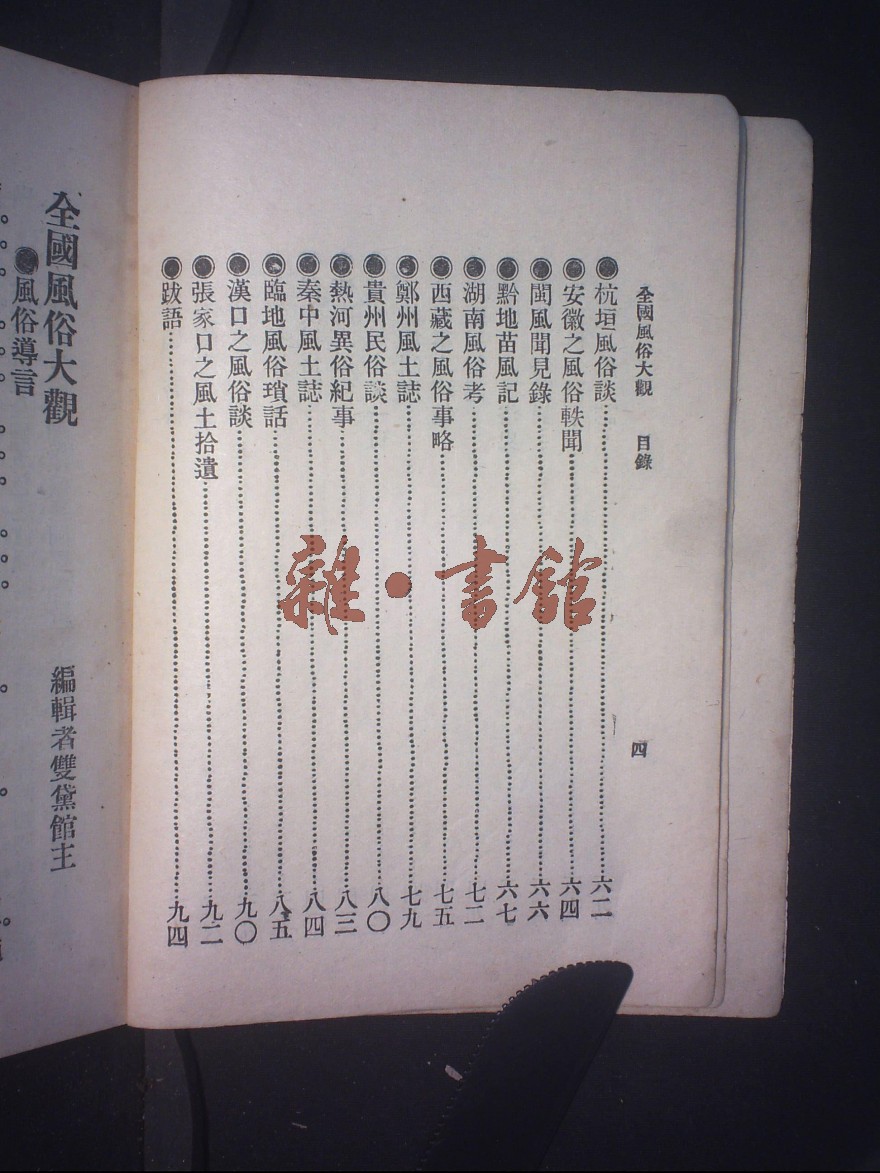 全國風俗大觀　目錄　四
◉杭垣風俗談……六二
◉安徽之風俗軼聞……六四
◉閩風聞見錄……六六
◉黔地苗風記……六七
◉湖南風俗考……七二
◉西藏之風俗事略……七五
◉鄭州風土誌……七九
◉貴州民俗談……八〇
◉熱河異俗紀事……八三
◉秦中風土誌……八四
◉臨地風俗瑣話……八五
◉漢口之風俗談……九〇
◉張家口之風土拾遺……九二
◉跋語……九四
全國風俗大觀　編輯者雙黛館主
◉風俗導言
雜·書館